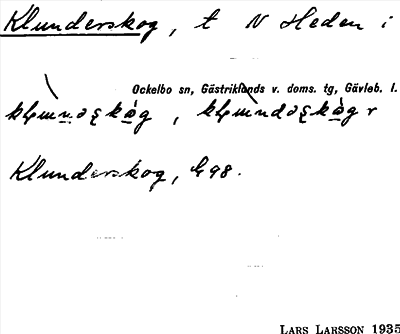 Klunderskog, t N Heden i
Ockelbo sn, Gästriklands v. doms. tg, Gävleb. l.
Klunderskog, G98.
LARS LARSSON 1935